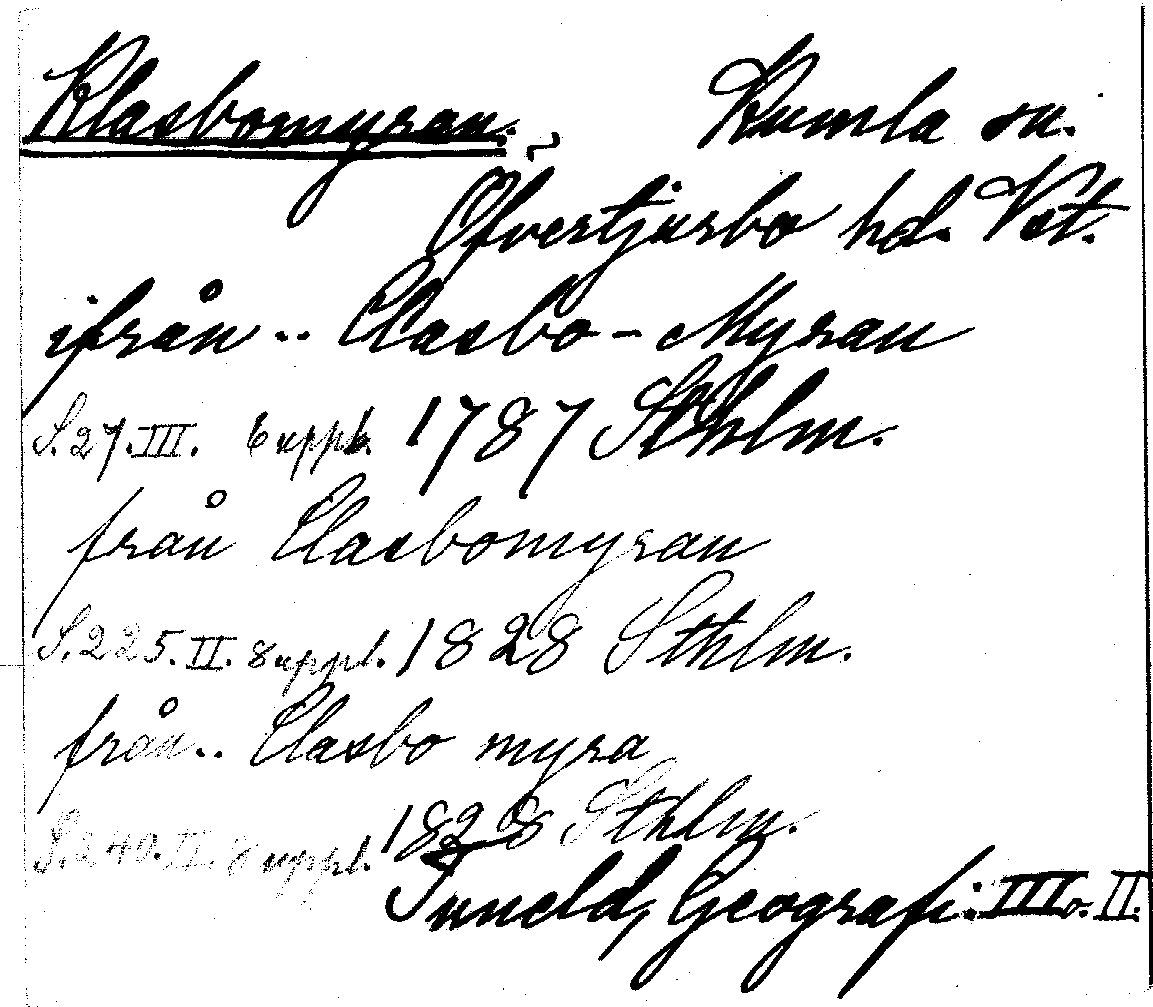 Klasbomyran. Kumla sn.
Öfvertjurbo hd. Vst.
ifrån .. Clasbo-Myran
S. 27. III. 6 uppl. 1787 Sthlm.
från Clasbomyran
S. 225. II. 8 uppl. 1828 Sthlm.
från .. Clasbo myra
S. 240. II. 8 uppl. 1828 Sthlm.
Tuneld, Geografi. III o. II.